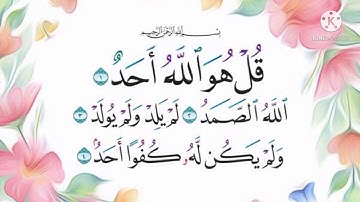 بِسْمِ اللَّهِ الرَّحْمَٰنِ الرَّحِيمِ
قُلْ هُوَ ٱللَّهُ أَحَدٌ ١
ٱللَّهُ ٱلصَّمَدُ ٢ لَمْ يَلِدْ وَلَمْ يُولَدْ ٣
وَلَمْ يَكُن لَّهُۥ كُفُوًا أَحَدٌۢ ٤